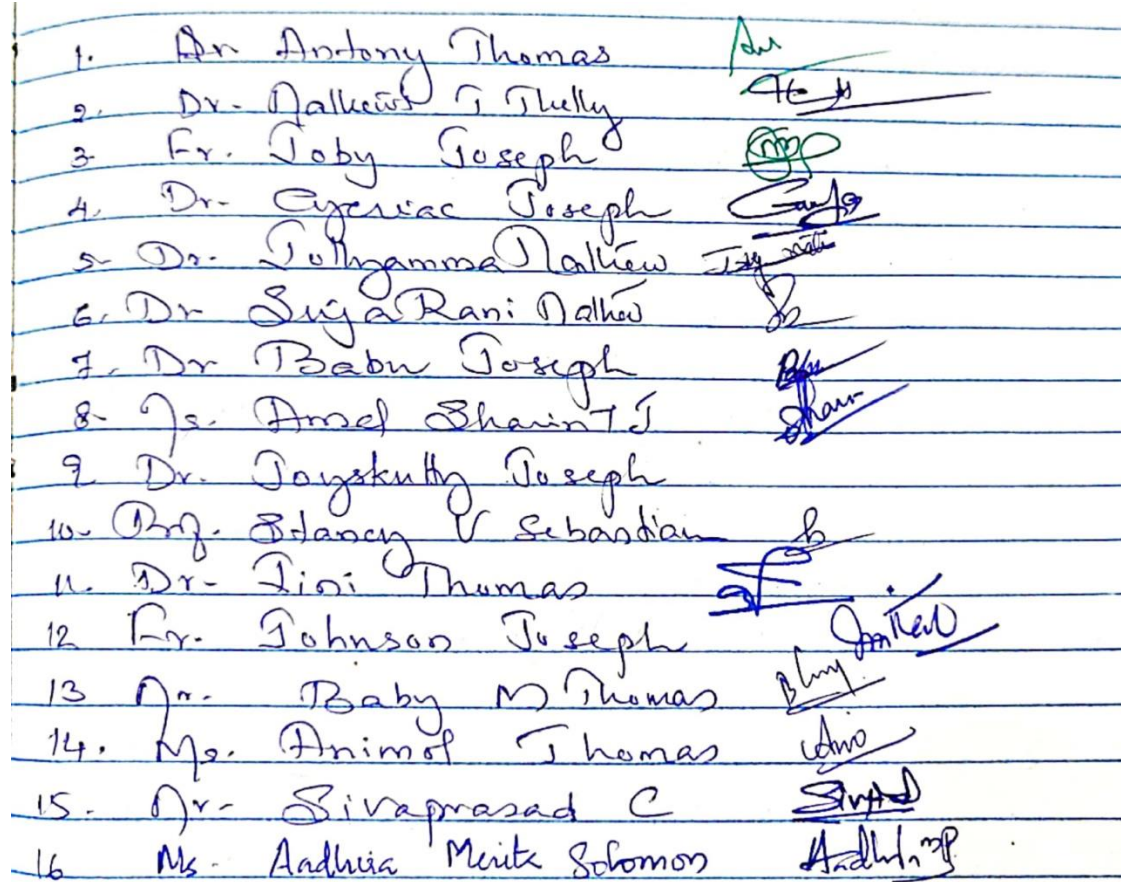 1. Dr Antony Thomas
2. Dr. Mathew T Thelly
3. Fr. Toby Joseph
4. Dr. Cyeriac Joseph
5. Dr. Jollyamma Mathew
6. Dr Suja Rani Mathew
7. Dr Babu Joseph
8. Ms. Amal Sharin T J Sharin
9 Dr. Joyskutty Joseph
10. Prof. Stancy V Sebastian
11. Dr. Jini Thomas
12 Fr. Johnson Joseph
13 Mr. Baby M Thomas
14. Ms. Animol Thomas
15. Mr. Sivaprasad C
16 Ms. Aadhira Merita Solomon